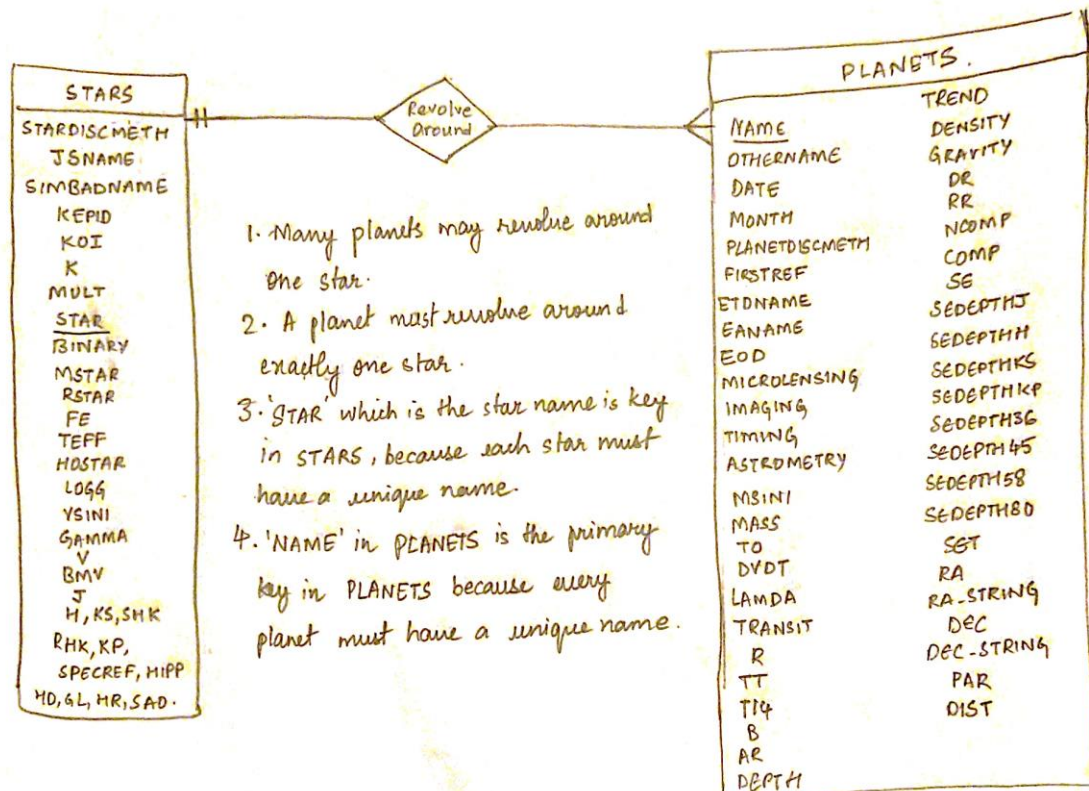 STARS
STARDISCMETH
JSNAME
SIMBADNAME
KEPID
KOI
K
MULT
STAR
BINARY
MSTAR
RSTAR
FE
TEFF
HDSTAR
LOGG
VSINI
GAMMA
V
BMV
J
H, KS, SHK
RHK, KP,
SPECREF, HIPP
HD, GL, HR, SAO.
Revolve
Around
1. Many planets may revolve around
one star.
2. A planet must revolve around
exactly one star.
3. 'STAR' which is the star name is key
in STARS, because each star must
have a unique name.
4. 'NAME' in PLANETS is the primary
key in PLANETS because every
planet must have a unique name.
PLANETS.
NAME
OTHERNAME
DATE
MONTH
PLANETDISCMETH
FIRSTREF
ETDNAME
EANAME
EOD
MICROLENSING
IMAGING
TIMING
ASTROMETRY
MSINI
MASS
TO
DVDT
LAMDA
TRANSIT
R
TT
T14
B
AR
DEPTH
TREND
DENSITY
GRAVITY
DR
RR
NCOMP
COMP
SE
SEDEPTHJ
SEDEPTHH
SEDEPTHKS
SEDEPTHKP
SEDEPTH36
SEDEPTH45
SEDEPTH58
SEDEPTH80
SET
RA
RA_STRING
DEC
DEC_STRING
PAR
DIST